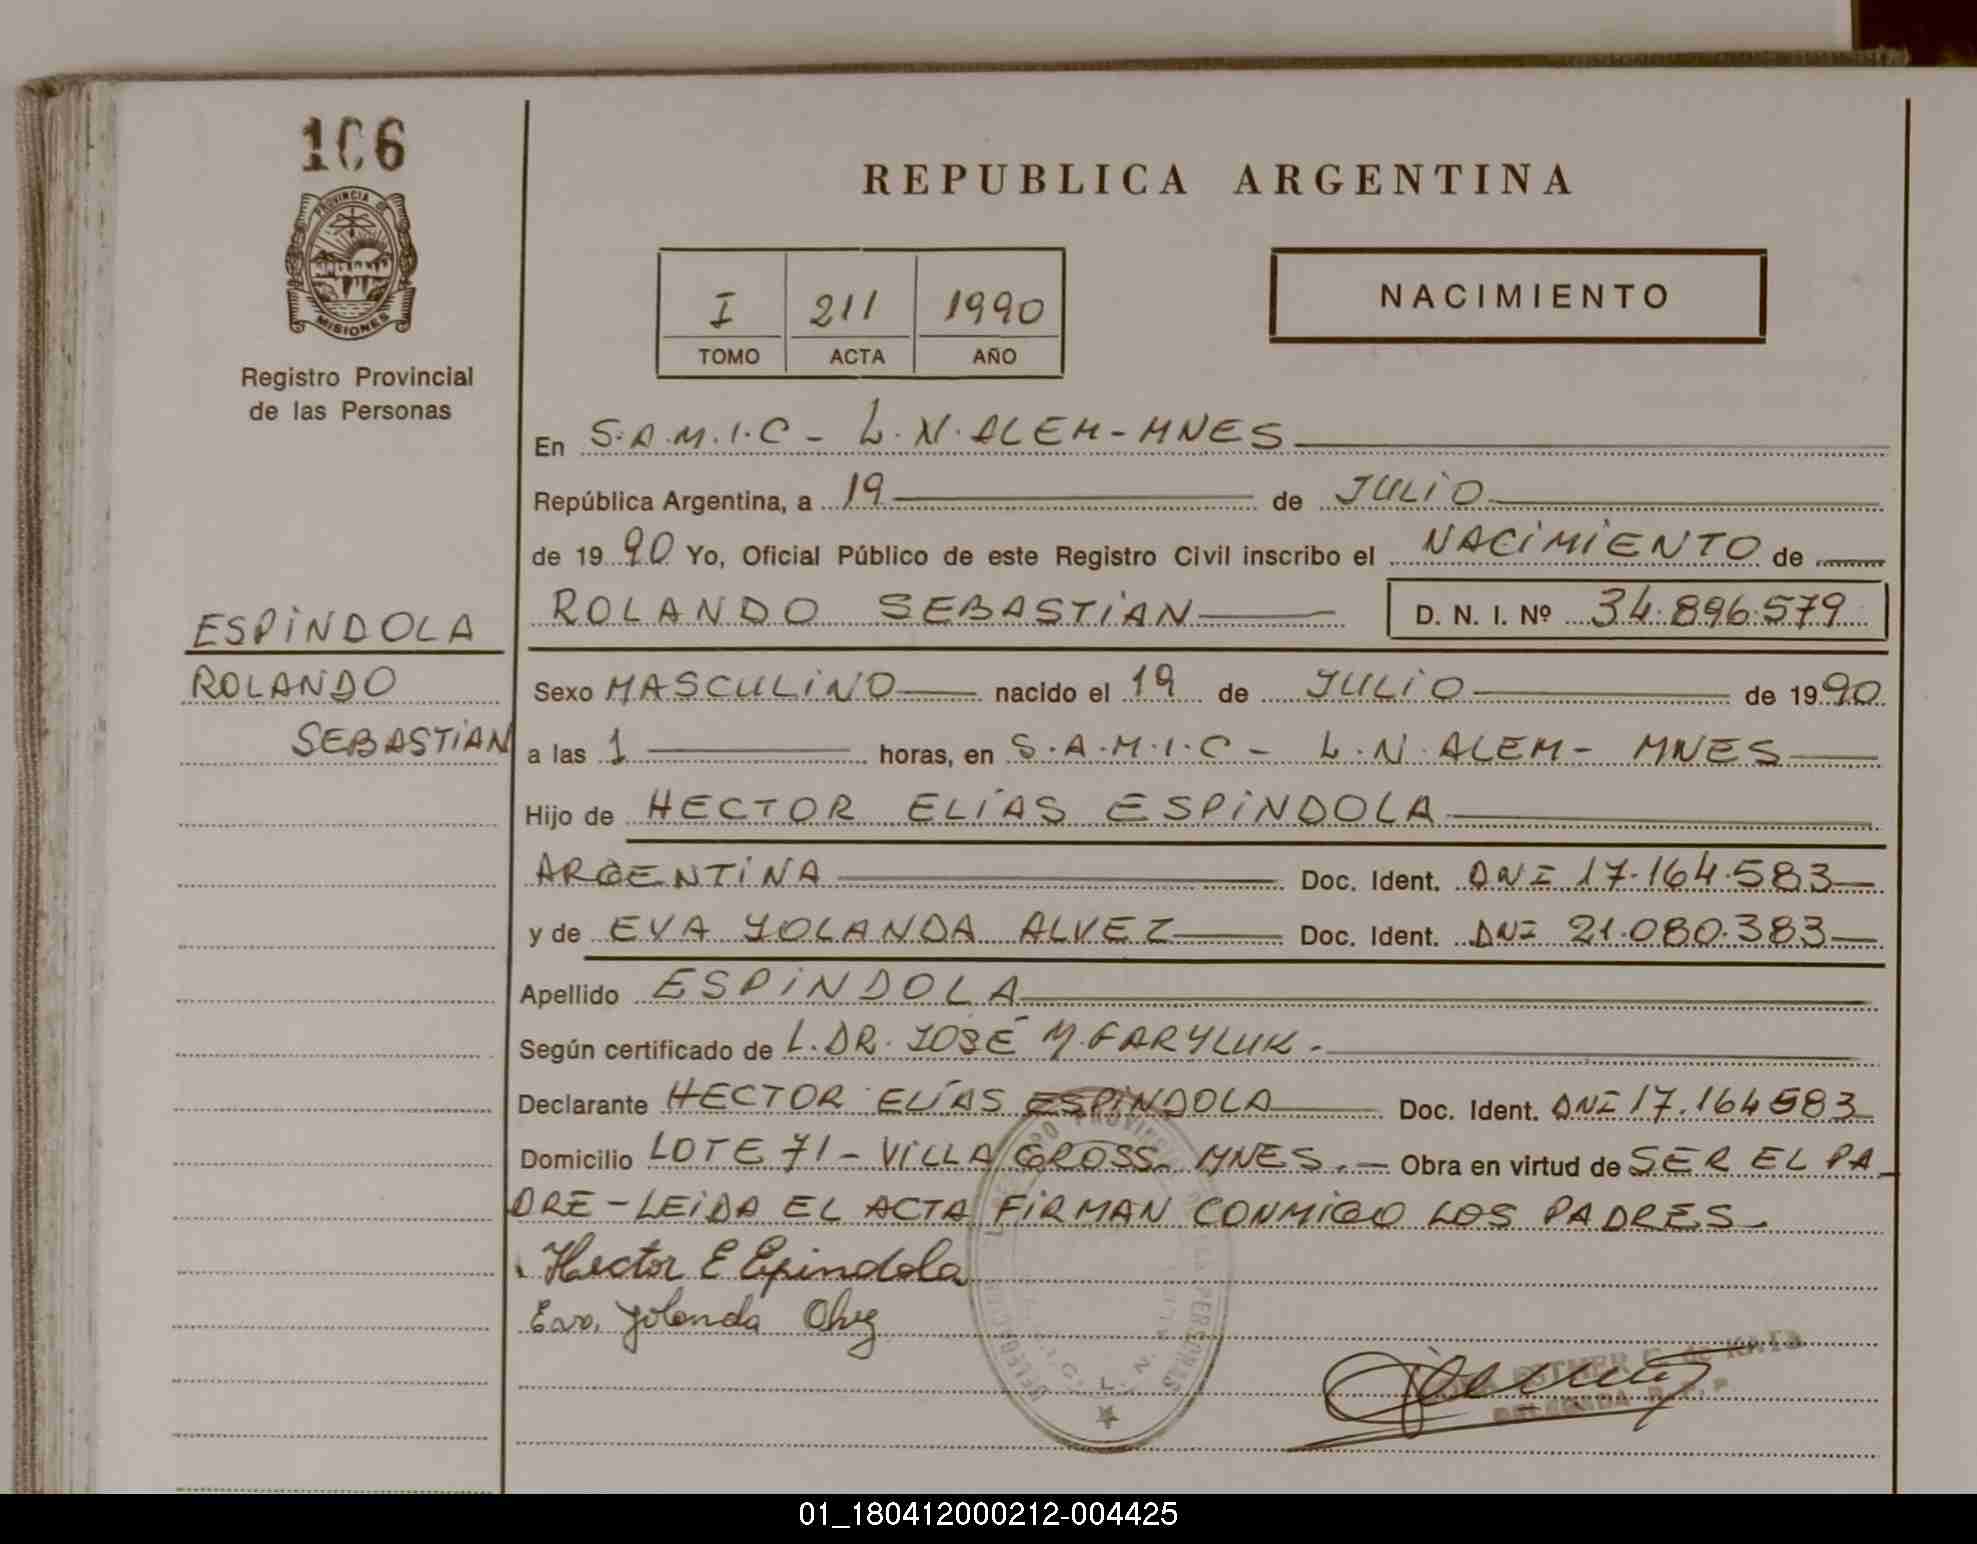 106
PROVINCIA DE
MISIONES
Registro Provincial
de las Personas
REPUBLICA ARGENTINA
I 211 1990
TOMO ACTA AÑO
NACIMIENTO
En S.A.M.I.C - L.N.ALEM-MNES
República Argentina, a 19 de JULIO
de 1990 Yo, Oficial Público de este Registro Civil inscribo el NACIMIENTO de
ROLANDO SEBASTIAN D. N. I. Nº 34.896.579
ESPINDOLA
ROLANDO
SEBASTIAN
Sexo MASCULINO nacido el 19 de JULIO de 1990
a las 1 horas, en S.A.M.I.C - L.N.ALEM- MNES
Hijo de HECTOR ELÍAS ESPINDOLA
ARGENTINA Doc. Ident. DNI 17.164.583
y de EVA YOLANDA ALVEZ Doc. Ident. DNI 21.080.383
Apellido ESPINDOLA
Según certificado de L.DR. JOSÉ M. FARYLUK.
Declarante HECTOR ELÍAS ESPINDOLA Doc. Ident. DNI 17.164583
Domicilio LOTE 71 - VILLA GROSS. MNES. - Obra en virtud de SER EL PA_
DRE - LEIDA EL ACTA FIRMAN CONMIGO LOS PADRES.
Hector E Espindola
Eva Yolanda
L. N.
01_180412000212-004425